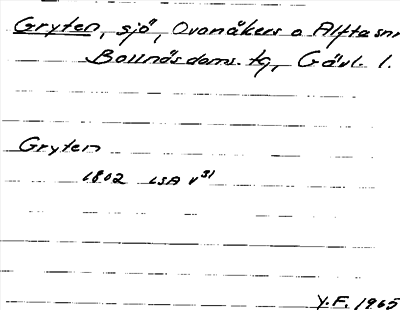 Gryten, sjö, Ovanåkers o Alfta snr
Bollnäs doms. tg, Gävl. l.
Gryten
1802 LSA V31
Y.F. 1965